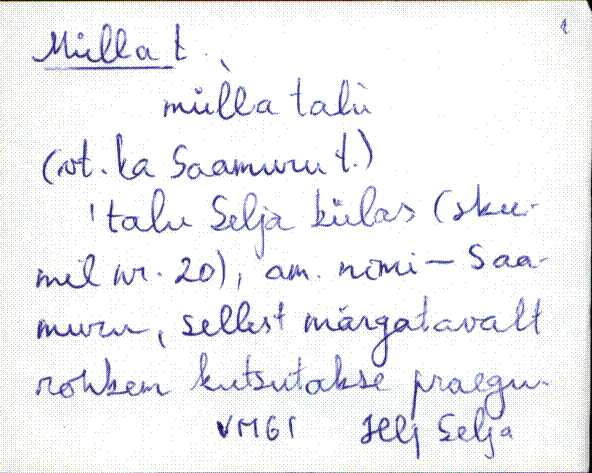 Mülla t.
mülla talu
(vt. ka Saamuru t.)
'talu Selja külas (skee-
mil nr. 20), am. nimi – Saa-
muru, sellest märgatavalt
rohkem kutsutakse praegu.
VMG1 Selja